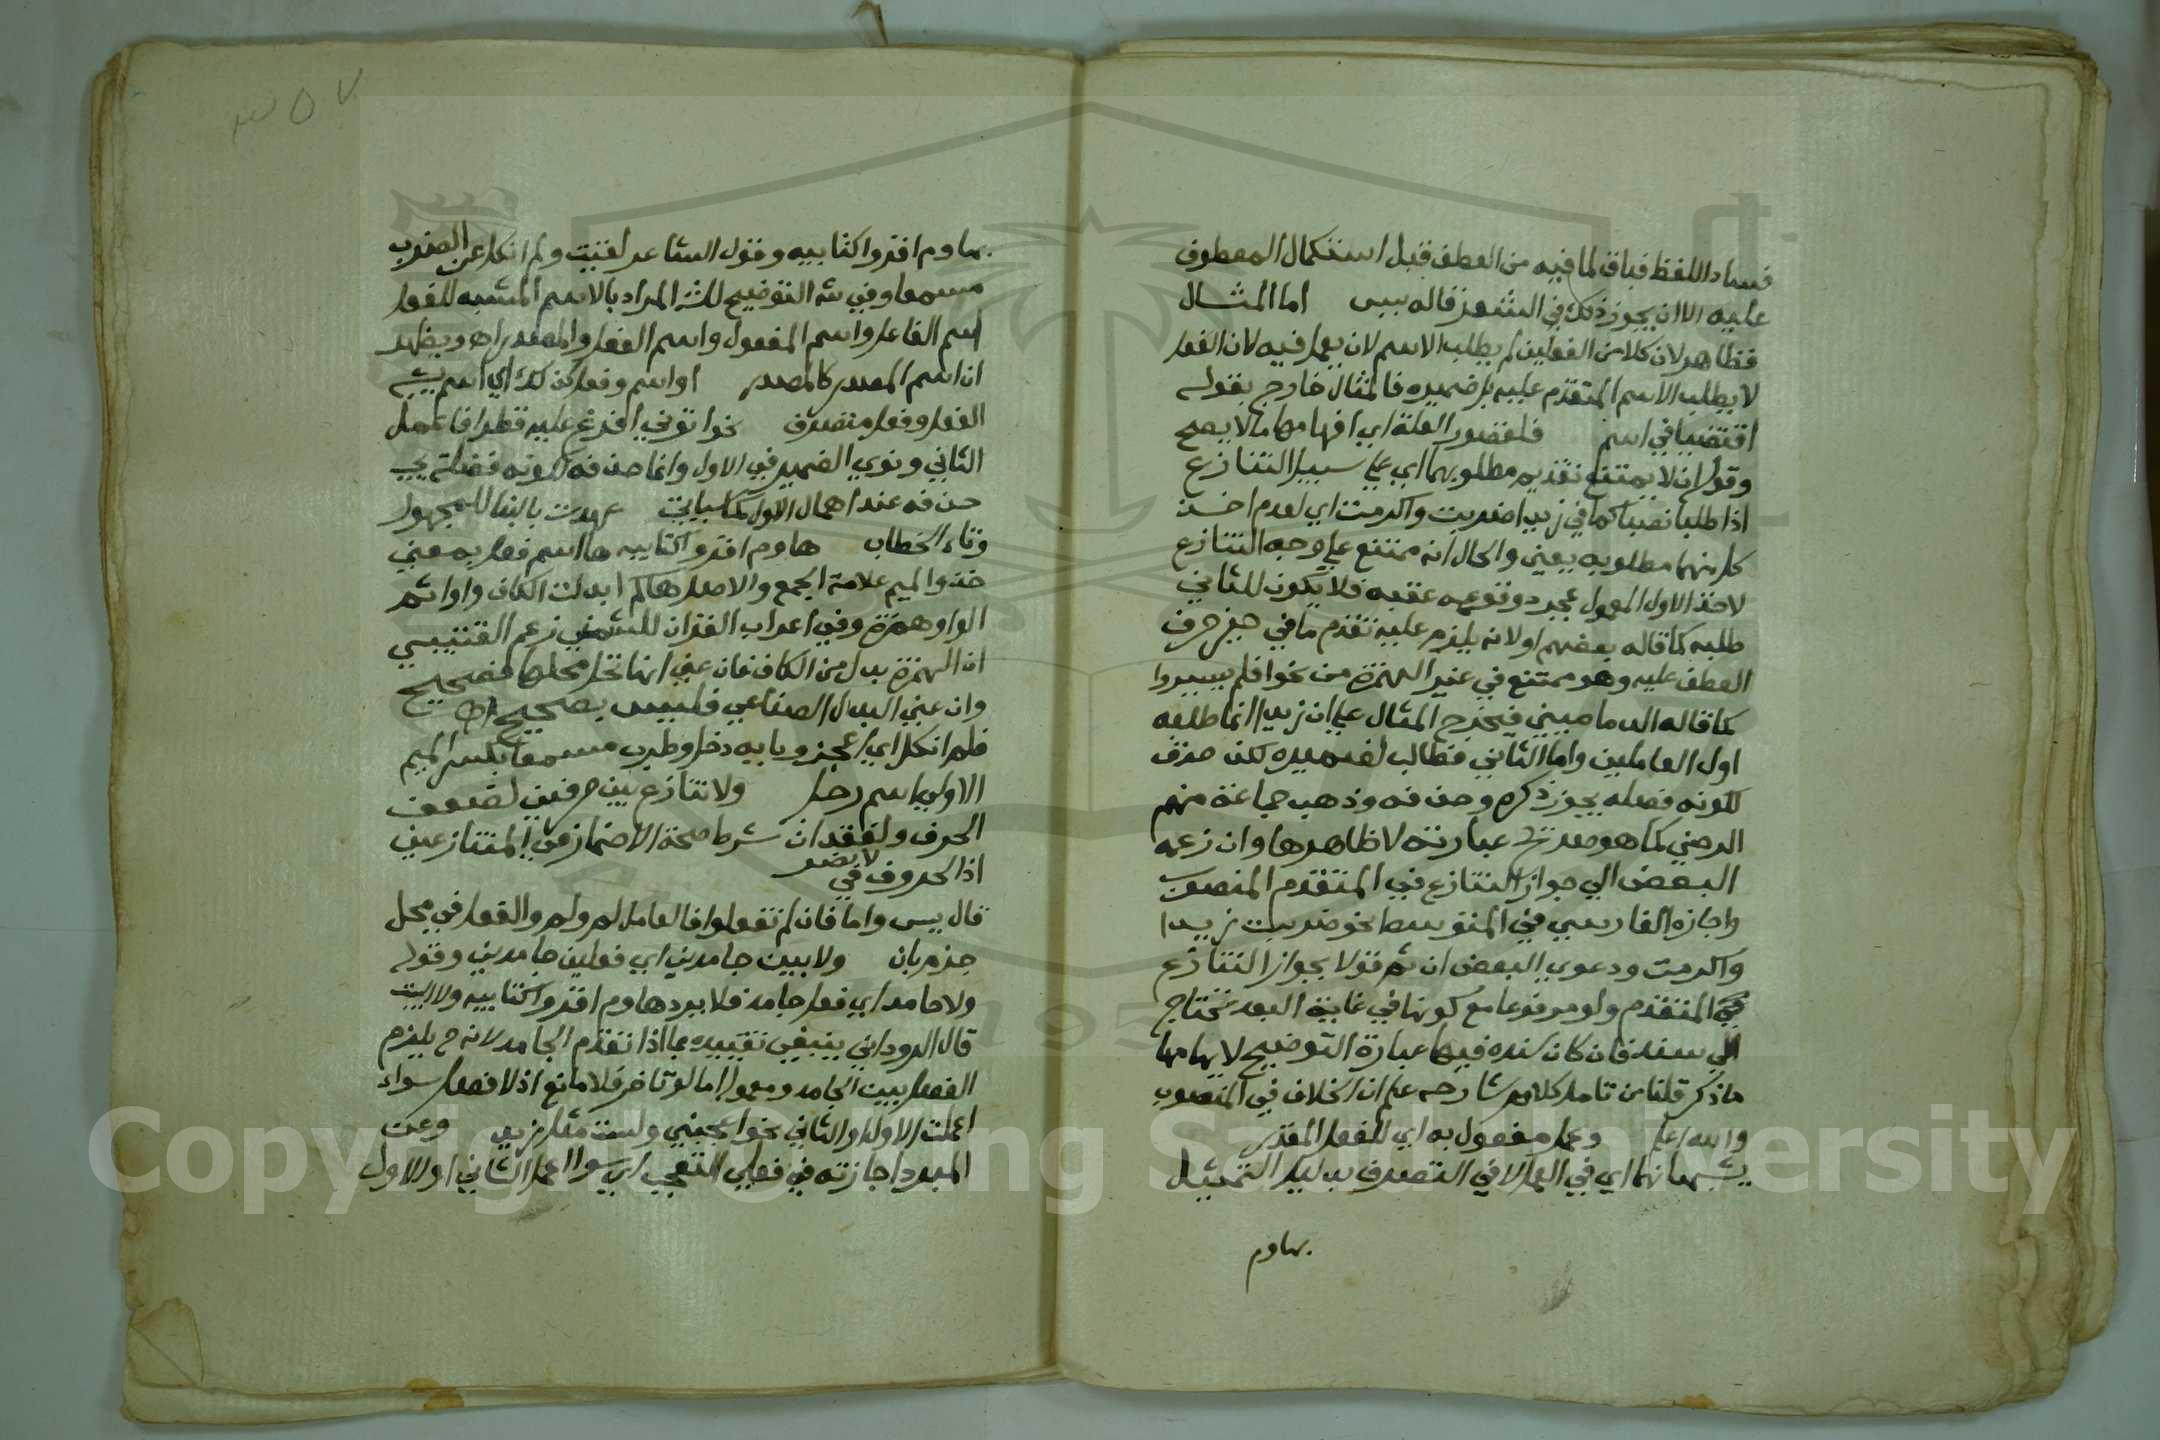 فساد اللفظ فباق لما فيه من العطف قبل استكمال المعطوف
عليه الا ان يجوز ذلك في الشعر قاله يس اما المثال
فظاهر لان كلا من الفعلين لم يطلب الاسم لان يعمل فيه لان الفعل
لا يطلب الاسم المتقدم عليه بل ضميره فالمثال خارج بقوله
اقتضيا في اسم فلقصور العلة اي افهامها ما لا يصح
وقول ان لا يمتنع تقديم مطلوبهما اي على سبيل التنازع
اذا طلبا نصبا كما في زيدا ضربت واكرمت اي لعدم اخذ
كل منهما مطلوبه يعني والحال انه ممتنع على وجه التنازع
لاخذ الاول المعمول بمجرد وقوعه عقبه فلا يكون للثاني
طلبه كما قاله بعضهم او لانه يلزم عليه تقدم ما في حيز حرف
العطف عليه وهو ممتنع في غير الهمزة من نحو افلم يسيروا
كما قاله الدماميني فيخرج المثال على ان زيدا انما طلبه
اول العاملين واما الثاني فطالب لضميره لكن حذف
لكونه فضله يجوز ذكره وحذفه وذهب جماعة منهم
الرضي كما هو صريح عبارته لا ظاهرها وان زعمه
البعض الي جواز التنازع في المتقدم المنصوب
واجازه الفارسي في المتوسط نحو ضربت زيدا
واكرمت ودعوي البعض ان ثم قولا بجواز التنازع
في المتقدم ولو مرفوعا مع كونها في غاية البعد تحتاج
الي سند فان كان سنده فيها عبارة التوضيح لايهامها
ما ذكر قلنا من تامل كلام شارحه علم ان الخلاف في المنصوب
والله اعلم وعمل مفعول به اي للفعل المقدر
يشبهانهما اي في العمل لا في التصرف بدليل التمثيل
بهاوم
٣٥٧
بهاوم اقروا كتابيه وقول الشاعر لقيت ولم انكل عن الضرب
مسمعا وفي شرح التوضيح للش المراد بالاسم المشبه للفعل
اسم الفاعل واسم المفعول واسم الفعل والمصدر اه ويظهر
ان اسم المصدر كالمصدر او اسم وفعل كذلك اي اسم يشبه
الفعل وفعل متصرف نحو اتوني افرغ عليه قطرا فاعمل
الثاني ونوي الضمير في الاول وانما حذفه لكونه فضلة يجب
حذفه عند اهمال الاول كما سياتي عهدت بالبنا للمجهول
وتاء الخطاب هاوم اقروا كتابيه ها اسم فعل بمعني
خذ والميم علامة الجمع والاصل هاكم ابدلت الكاف واوا ثم
الواو همزة وفي اعراب القران للسمين زعم القتيبي
ان الهمزة بدل من الكاف فان عني انها تحل محلها فصحيح
وان عني البدل الصناعي فليس بصحيح اه
فلم انكل اي اعجز وبابه دخل وطرب مسمعا بكسر الميم
الاولي اسم رجل ولا تنازع بين حرفين لضعف
الحرف ولفقدان شرط صحة الاضمار في المتنازعين
اذ الحروف لا يضمر في
قال يس واما فان لم تفعلوا فالعامل لم ولم والفعل في محل
جزم بان ولا بين جامدين اي فعلين جامدين وقوله
ولا جامد اي فعل جامد فلا يرد هاوم اقروا كتابيه ولا
قال الروداني ينبغي تقييده بما اذا تقدم الجامد لانه ح يلزم
الفصل بين الجامد ومعموله اما لو تاخر فلا مانع اذ لا فصل سواء
اعملت الاول او الثاني نحو اعجبني ولست مثل زيد وعن
المبرد اجازته في فعلي التعجب اي سوا اعمل الثاني او الاول